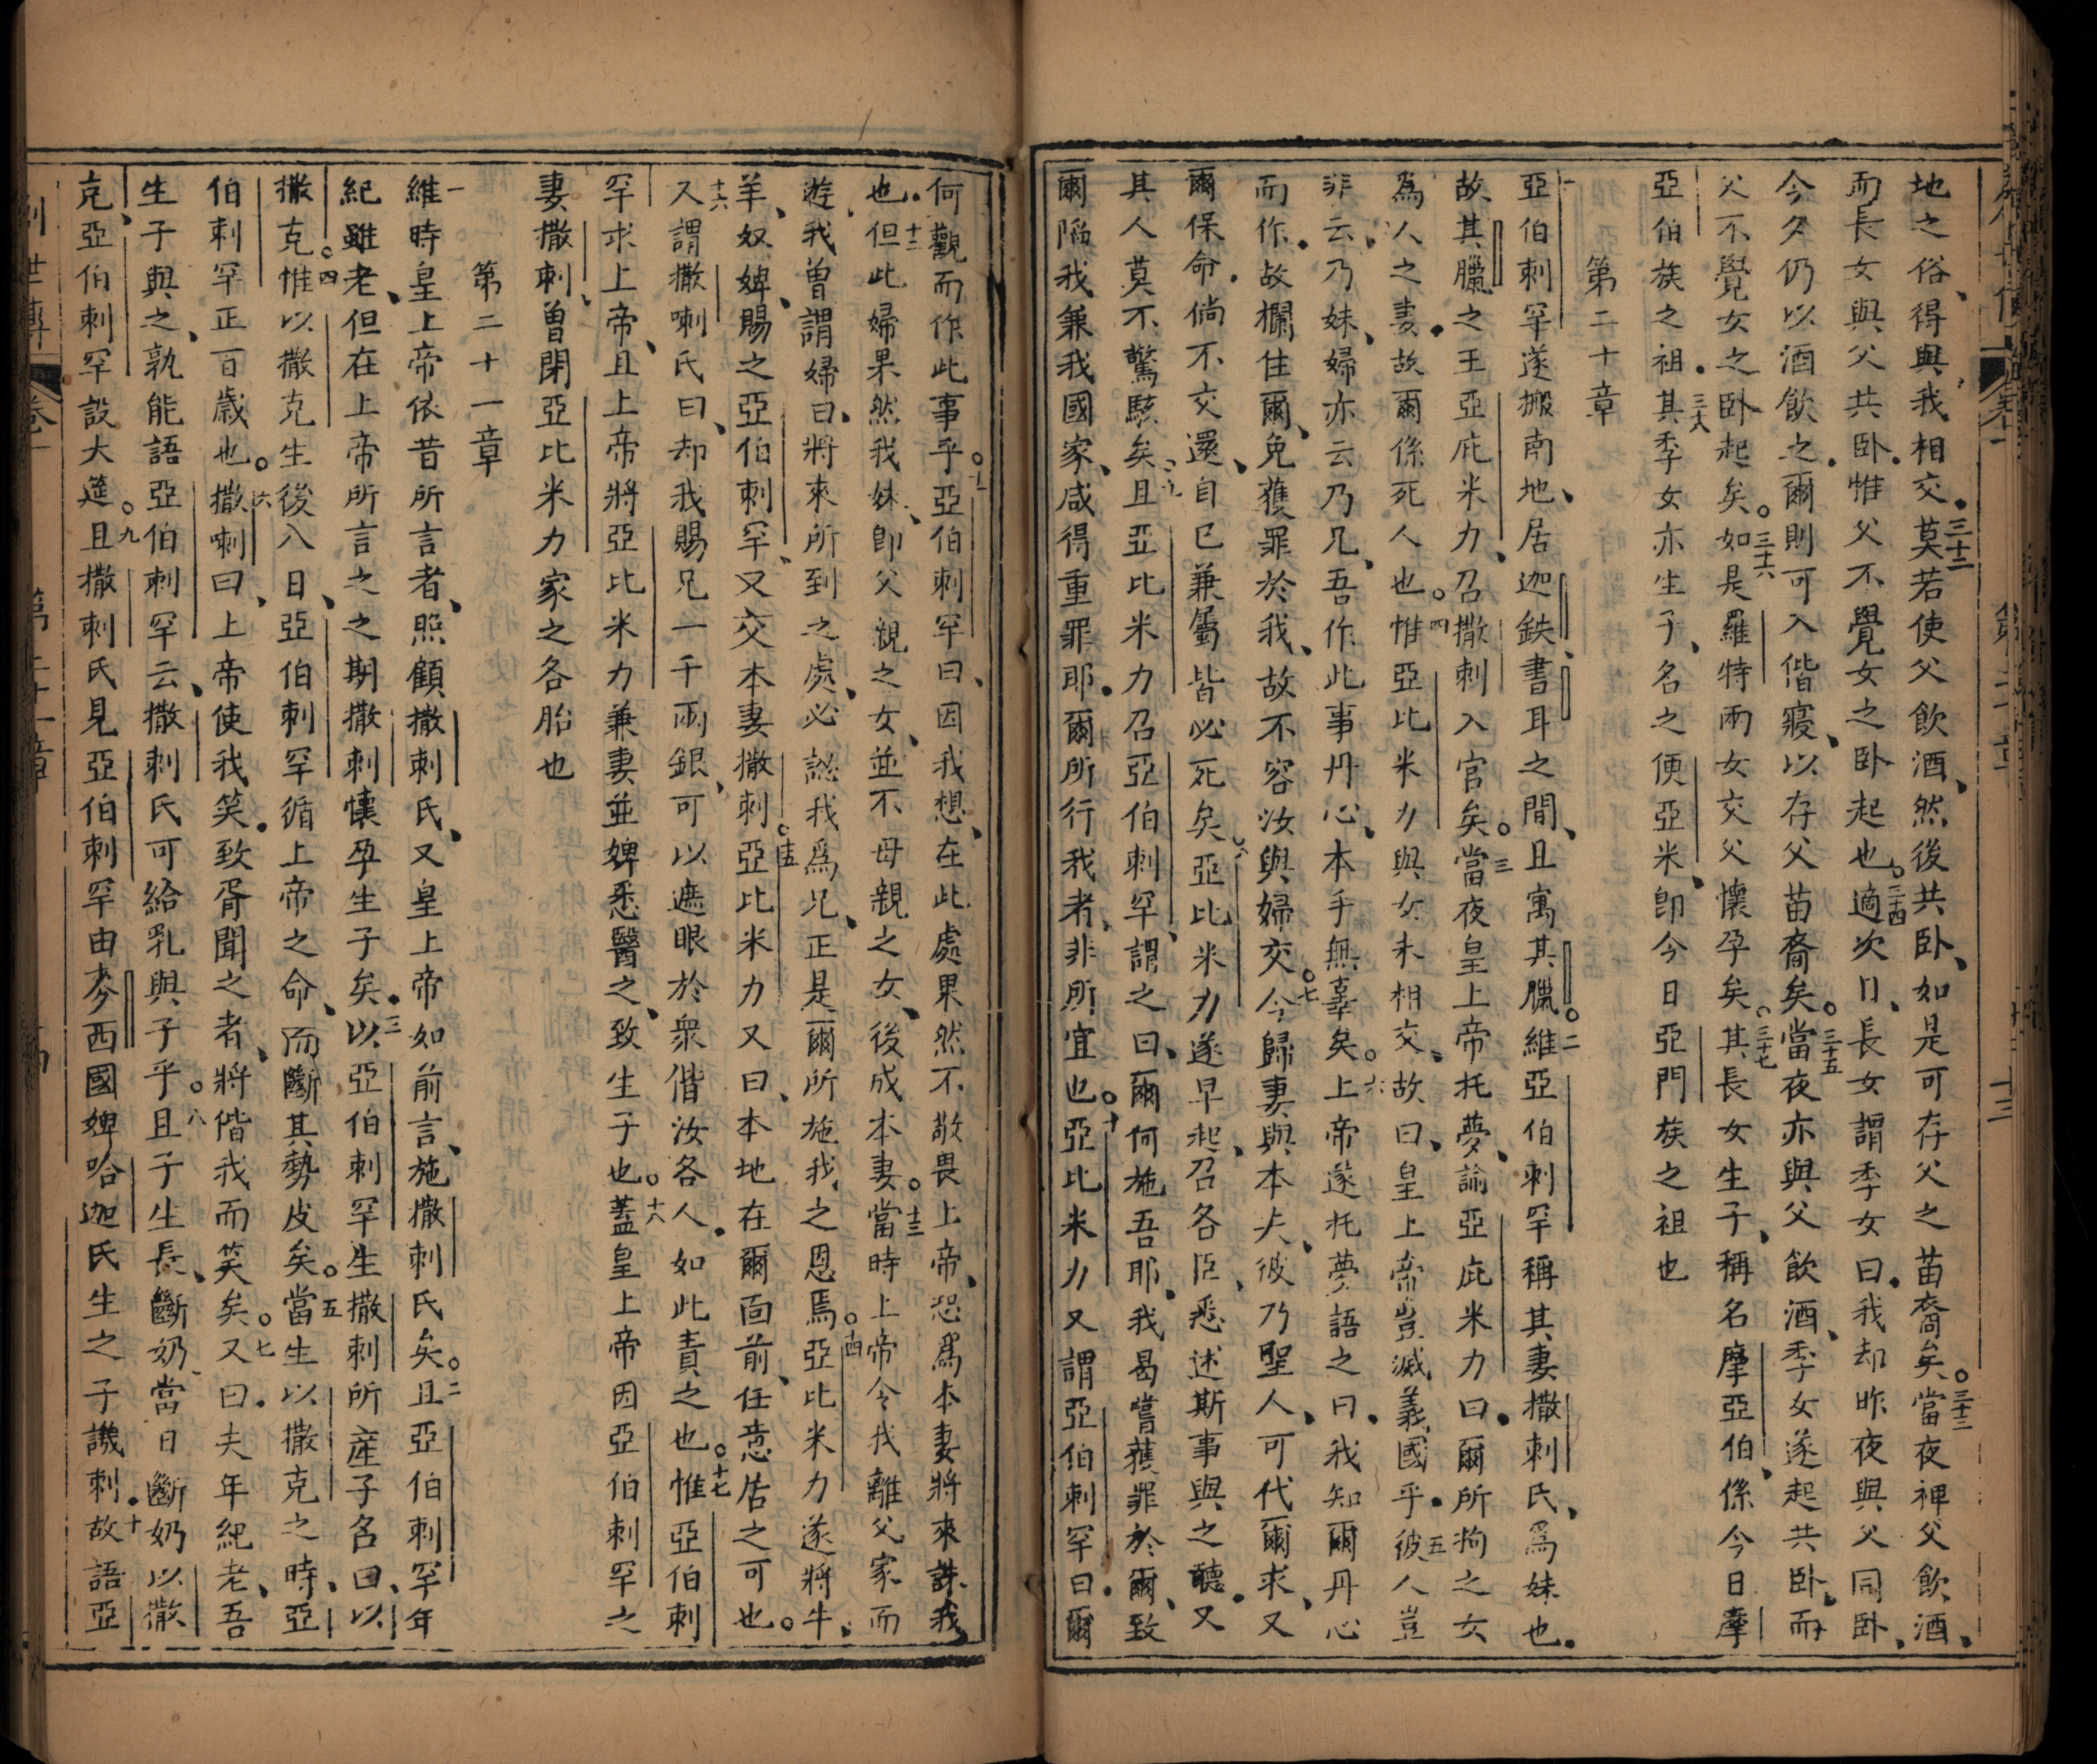 地之俗、得與我相交、三十二莫若使父飲酒、然後共卧、如是可存父之苗裔矣。三十三當夜裨父飲酒、
而長女與父共卧、惟父不覺女之卧起也。三十四適次日、長女謂季女曰、我却昨夜與父同卧、
今夕仍以酒飲之、爾則可入偕寢、以存父苗裔矣。三十五當夜亦與父飲酒、季女遂起共卧、而
父不覺女之卧起矣。三十六如是羅特兩女交父懷孕矣。三十七其長女生子、稱名摩亞伯、係今日摩
亞伯族之祖。三十八其季女亦生子、名之便亞米、即今日亞門族之祖也
第二十章
一亞伯剌罕遂搬南地、居迦鉄、書耳之間、且寓其臘。二維亞伯剌罕稱其妻撒剌氏、爲妹也、
故其臘之王亞庇米力、召撒剌入宮矣。三當夜皇上帝托夢、諭亞庇米力曰、爾所拘之女
爲人之妻、故爾係死人也。四惟亞比米力與女未相交、故曰、皇上帝豈滅義國乎、五彼人豈
非云、乃妹、婦亦云乃兄、吾作此事丹心、本手無辜矣。六上帝遂托夢語之曰、我知爾丹心
而作、故攔住爾、免獲罪於我、故不容汝與婦交。七今歸妻與本夫、彼乃聖人、可代爾求、又
爾保命、倘不交還、自己兼屬皆必死矣。八亞比米力遂早起、召各臣、悉述斯事與之聽、又
其人莫不驚駭矣。九且亞比米力召亞伯剌罕、謂之曰、爾何施吾耶、我曷嘗獲罪於爾、致
爾陷我兼我國家、咸得重罪耶、爾所行我者、非所宜也。十亞比米力又謂亞伯剌罕曰、爾
何觀而作此事乎。十一亞伯剌罕曰、因我想、在此處果然不敬畏上帝、恐爲本妻將來誅我
也、十二但此婦果然我妹、即父親之女、並不母親之女、後成本妻。十三當時上帝令我離父家而
遊、我曾謂婦曰、將來所到之處、必認我爲兄、正是爾所施我之恩焉。十四亞比米力遂將牛、
羊、奴婢、賜之亞伯剌罕、又交本妻撒剌。十五亞比米力又曰、本地在爾面前、任意居之可也。
十六又謂撒喇氏曰、却我賜兄一千兩銀、可以遮眼於衆偕汝各人、如此責之也。十七惟亞伯剌
罕求上帝、且上帝將亞比米力兼妻並婢悉醫之、致生子也。十八蓋皇上帝因亞伯剌罕之
妻撒剌、曾閉亞比米力家之各胎也
第二十一章
一維時皇上帝依昔所言者、照顧撒剌氏、又皇上帝如前言、施撒剌氏矣。二且亞伯剌罕年
紀雖老、但在上帝所言之之期、撒剌懷孕生子矣、三以亞伯剌罕生撒剌所產子名曰、以
撒克。四惟以撒克生後八日、亞伯剌罕循上帝之命、而斷其勢皮矣。五當生以撒克之時、亞
伯剌罕正百歲也。六撒喇曰、上帝使我笑、致胥聞之者、將偕我而笑矣。七又曰、夫年紀老、吾
生子與之、孰能語亞伯剌罕云、撒剌氏可給乳與子乎。八且子生長、斷奶、當日斷奶以撒
克、亞伯剌罕設大筵。九且撒剌氏見亞伯剌罕由麥西國婢哈迦氏生之子譏剌、十故語亞
創世傳 卷一 第二十一章